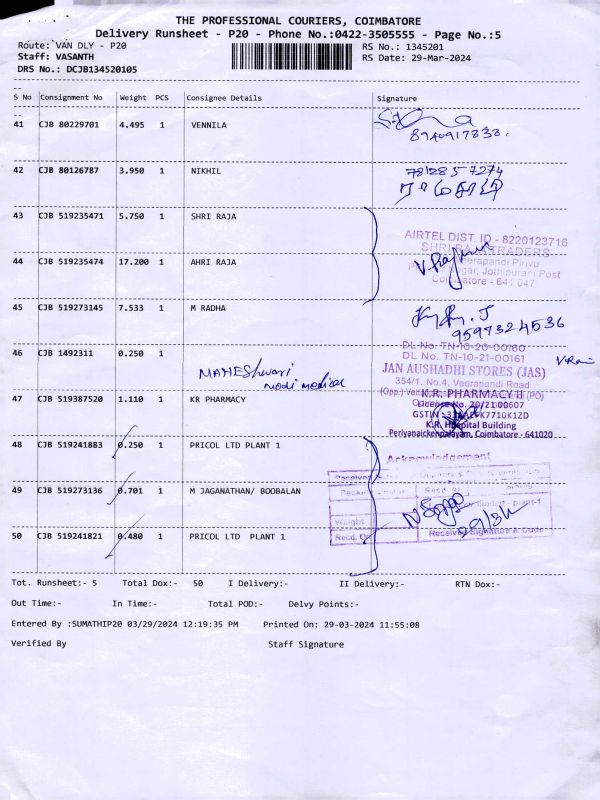 THE PROFESSIONAL COURIERS, COIMBATORE
Delivery Runsheet - P20 - Phone No.:0422-3505555 - Page No.:5
Route: VAN DLY - P20
RS No.: 1345201
Staff: VASANTH
RS Date: 29-Mar-2024
DRS No.: DCJB134520105
S No Consignment No Weight PCS Consignee Details Signature
41 CJB 80229701 4.495 1 VENNILA
8940917333.
42 CJB 80126787 3.950 1 NIKHIL
7812857274
43 CJB 519235471 5.750 1 SHRI RAJA
AIRTEL DIST. ID - 8220123716
SHRI RAJA TRADERS
44 CJB 519235474 17.200 1 AHRI RAJA
Veerapandi Pirivu
Nagar, Jothipuram Post
Coimbatore - 641 047
45 CJB 519273145 7.533 1 M RADHA
9597324536
46 CJB 1492311 0.250 1
MAHEShwari
modi medical
DL No. TN-10-20-00160
DL No. TN-10-21-00161
JAN AUSHADHI STORES (JAS)
354/1, No.4, Veerapandi Road
47 CJB 519387520 1.110 1 KR PHARMACY
K.R. PHARMACY II
License No. 20/21/00607
K.R. Hospital Building
Periyanaickenpalayam, Coimbatore - 641020
48 CJB 519241883 0.250 1 PRICOL LTD PLANT 1
Acknowledgement
49 CJB 519273136 0.701 1 M JAGANATHAN/ BOOBALAN
Weight
50 CJB 519241821 0.480 1 PRICOL LTD PLANT 1
Recd. On
Receiver Signature & Code
Tot. Runsheet:- 5 Total Dox:- 50 I Delivery:- II Delivery:- RTN Dox:-
Out Time:- In Time:- Total POD:- Delvy Points:-
Entered By :SUMATHIP20 03/29/2024 12:19:35 PM Printed On: 29-03-2024 11:55:08
Verified By Staff Signature